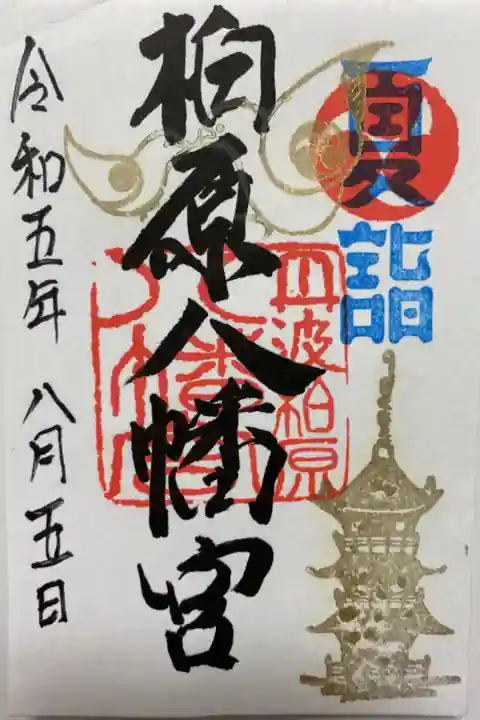 夏詣
柏原八幡宮
丹波柏原
令和五年 八月五日